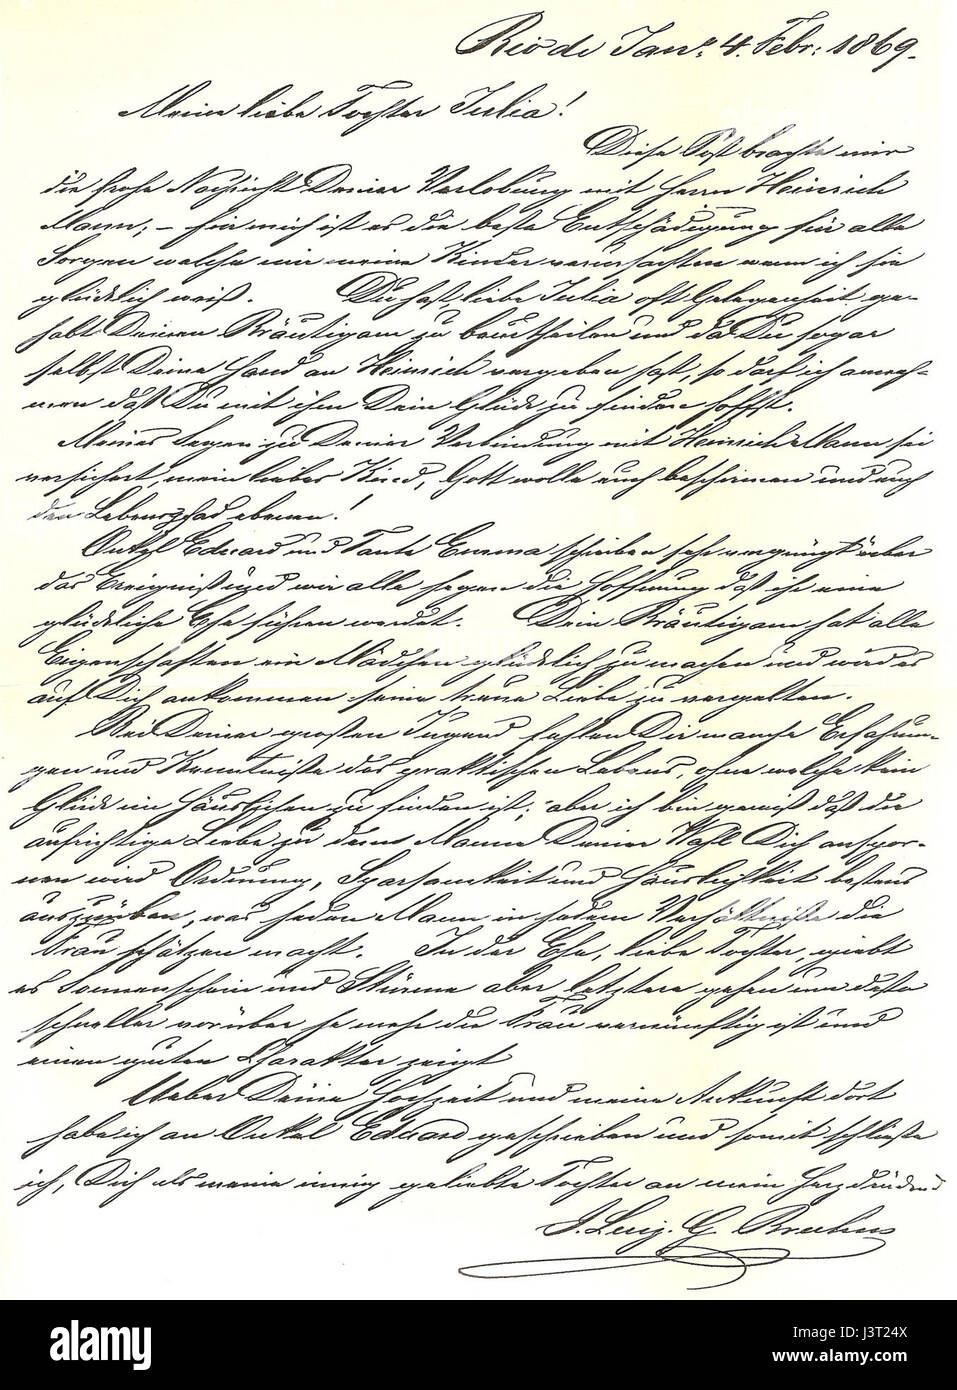 Rio de Jan.º 4. Febr: 1869.
Meine liebe Tochter Julia!
Diese Post brachte mir
die frohe Nachricht Deiner Verlobung mit Herrn Heinrich
Mann; – für mich ist es die beste Entschädigung für alle
Sorgen welche mir meine Kinder verursachten wenn ich sie
glücklich weiß. Du hast liebe Julia oft Gelegenheit ge-
habt Deinen Bräutigam zu beurtheilen und da Du sogar
selbst Deine Hand an Heinrich vergeben hast, so darf ich anneh-
men daß Du mit ihm Dein Glück zu finden hoffst.
Meines Segen zu Deiner Verbindung mit Heinrich Mann sei
versichert, mein liebes Kind, Gott wolle euch beschirmen und euch
den Lebenspfad ebenen!
Onkel Eduard und Tante Emma schreiben sehr vergnügt über
das Ereigniß und wir alle hegen die Hoffnung daß ihr eine
glückliche Ehe führen werdet. Dein Bräutigam hat alle
Eigenschaften ein Mädchen glücklich zu machen und wird es
auf Dich ankommen seine treue Liebe zu vergelten.
Bei Deiner großen Jugend fehlen Dir manche Erfahrun-
gen und Kenntniße des praktischen Lebens, ohne welche kein
Glück im Häuslichen zu finden ist; aber ich bin gewiß daß die
aufrichtige Liebe zu dem Manne Deiner Wahl Dich anspor-
nen wird Ordnung, Sparsamkeit und Häuslichkeit bestens
auszuüben, was jeden Mann in jedem Verhältniße die
Frau schätzen macht. In der Ehe, liebe Tochter, giebt
es Sonnenschein und Stürme aber letztere gehen um desto
schneller vorüber je mehr die Frau vernünftig ist und
einen guten Charakter zeigt
Ueber Deine Hochzeit und meine Ankunft dort
habe ich an Onkel Eduard geschrieben und somit schließe
ich, Dich als meine innig geliebte Tochter an mein Herz drückend
J. Luiz. G Bruhns
alamy
Image ID: J3T24X
www.alamy.com